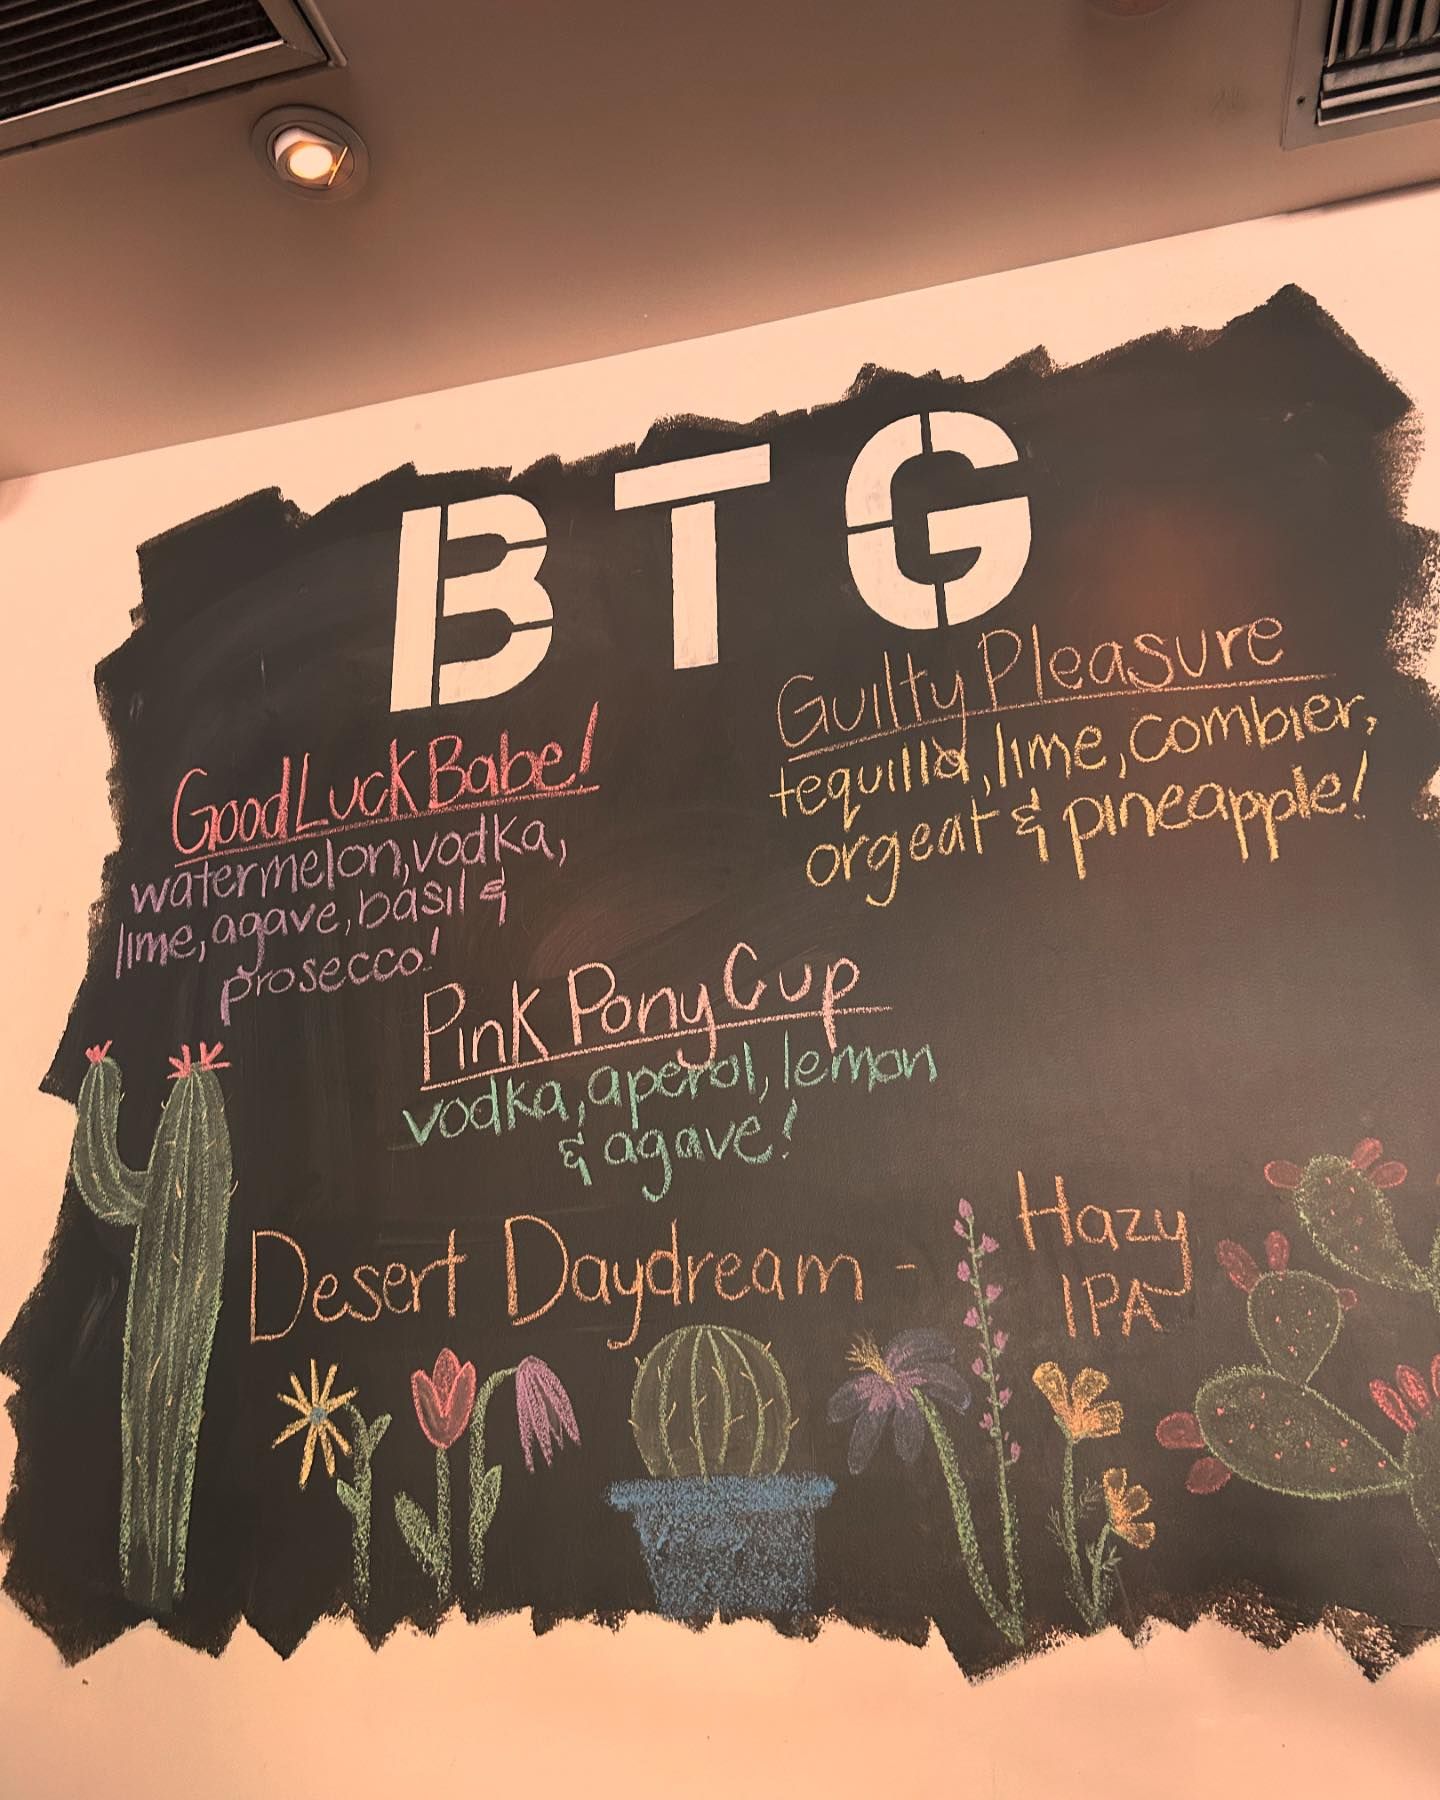 BTG
Good Luck Babe!
watermelon, vodka,
lime, agave, basil &
prosecco!
Guilty Pleasure
tequilla, lime, combier,
orgeat & pineapple!
Pink Pony Cup
vodka, aperol, lemon
& agave!
Desert Daydream - Hazy
IPA